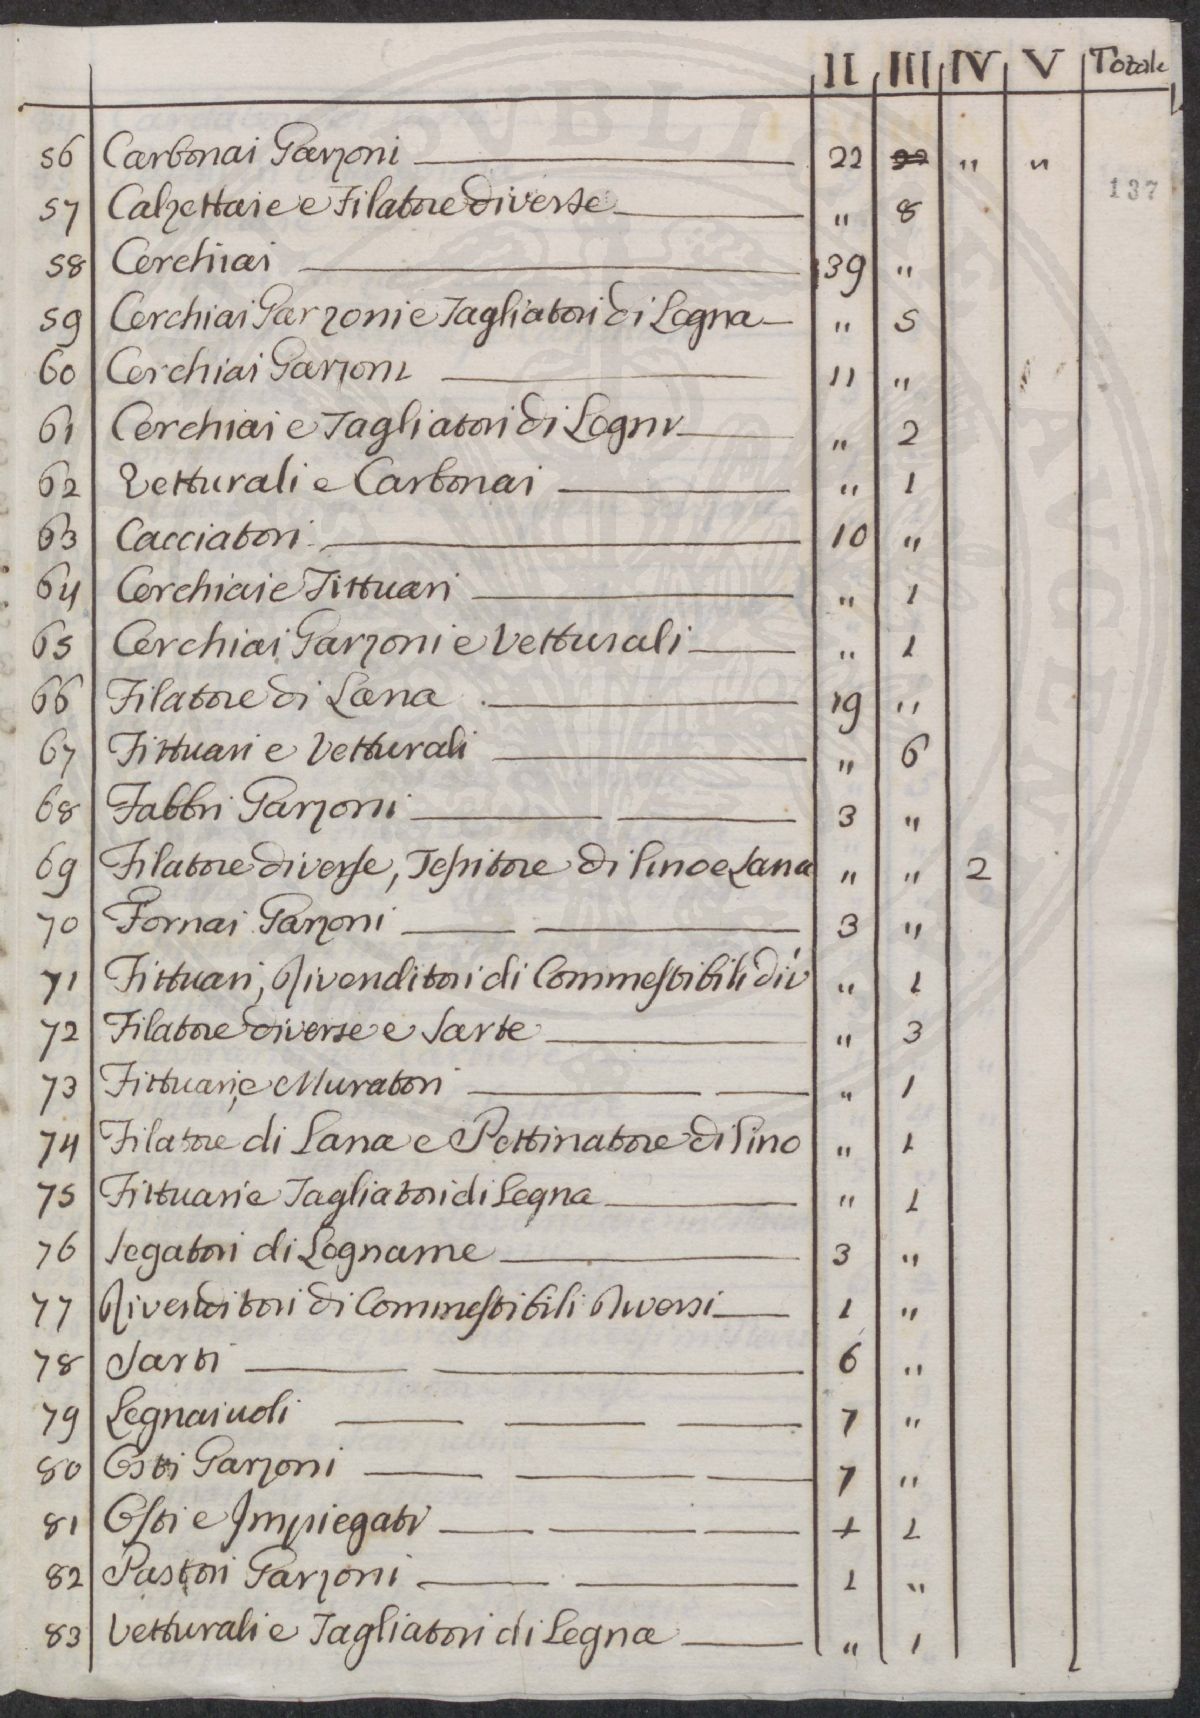 II III IV V Totale
137
56 Carbonai Garzoni 22 22 " "
57 Calzettaie e Filatore diverse " 8
58 Cerchiai 39 "
59 Cerchiai Garzoni e Tagliatori di Legna " 5
60 Cerchiai Garzoni 11 "
61 Cerchiai e Tagliatori di Legna " 2
62 Vetturali e Carbonai " 1
63 Cacciatori 10 "
64 Cerchiai e Fittuari " 1
65 Cerchiai Garzoni e Vetturali " 1
66 Filatore di Lana 19 "
67 Fittuari e Vetturali " 6
68 Fabbri Garzoni 3 "
69 Filatore diverse, Tessitore di lino e Lana " " 2
70 Fornai Garzoni 3 "
71 Fittuari, Rivenditori di Commestibili div " 1
72 Filatore diverse e Sarte " 3
73 Fittuari, e Muratori " 1
74 Filatore di Lana e Pettinatore di lino " 1
75 Fittuari e Tagliatori di Legna " 1
76 Segatori di Legname 3 "
77 Rivenditori di Commestibili diversi 1 "
78 Sarti 6 "
79 Legnaiuoli 7 "
80 Osti Garzoni 7 "
81 Osti e Impiegati 1
82 Pastori Garzoni 1 "
83 Vetturali e Tagliatori di Legna " 1